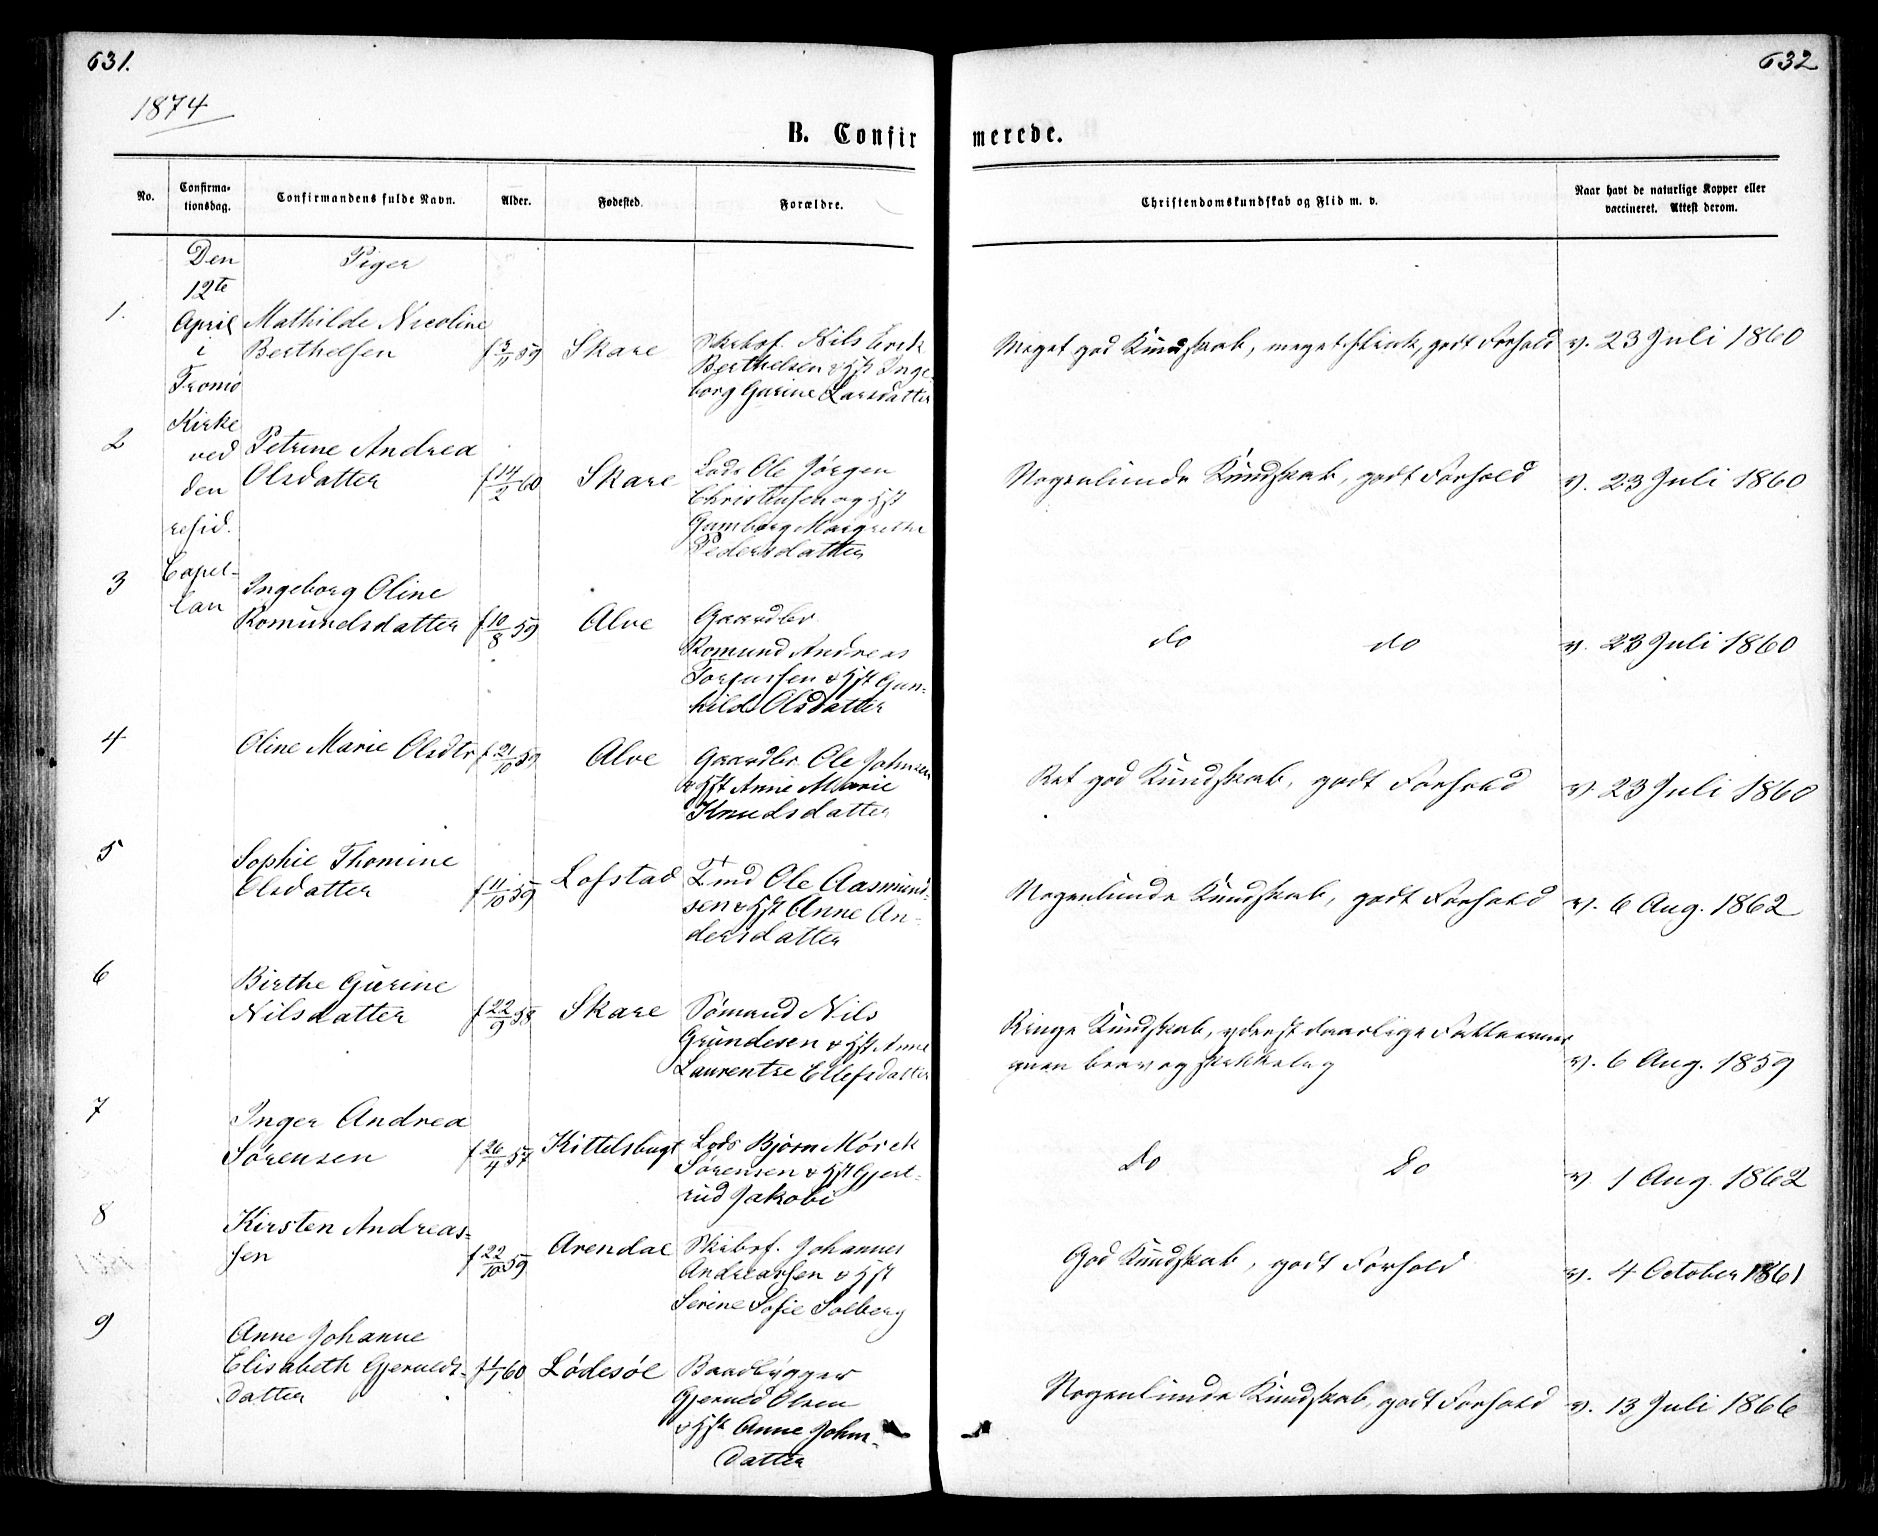 631.
1874
B. Confir
No.
Confirma-
tionsdag.
Confirmandens fulde Navn.
Alder.
Fødested.
Forældre.
Den
12te
April
i
Tromø
Kirke
ved
den
resid.
Capel-
lan
Piger
1.
Mathilde Nicoline
Berthelsen
f 59
Skare
Skibsf. Nils
Berthelsen & Hst Inge-
borg Gurine Larsdatter
2
Petrine Andrea
Olsdatter
f 14/2 60
Skare
Lods Ole Jørgen
Christensen og Hst
Gumborg Margrethe
Pedersdatter
3
Ingeborg Oline
Romundsdatter
f 10/8 59
Alve
Gaardbr
Romund Andreas
& Hst Gun-
hild Olsdatter
4
Oline Marie Olsdtr
f 21/10 59
Alve
Gaardbr Ole Johnsen
& Hst Anne Marie
Knudsdatter
5
Sophie Thomine
Olsdatter
f 11/10 59
Lofstad
Ole Aasmund-
sen & Hst Anne An-
dersdatter
6
Birthe Gurine
Nilsdatter
f 22/9 58
Skare
Sømand Nils
Gundesen & Hst Anne
Laurentse Ellefsdatter
7
Inger Andrea
Sørensen
f 26/4 57
Kittelsbugt
Lods Bjørn Mørck
Sørensen & Hst Gjert-
rud Jakobi
8
Kirsten Andreas-
sen
f 22/10 59
Arendal
Skibsf. Johannes
Andreassen & Hst
Serine Sofie Solberg
9
Anne Johanne
Elisabeth Gjerulds-
datter
f 1/1 60
Lødesøl
Baadbygger
Gjeruld Olsen
& Hst Anne Johns-
datter
632
merede.
Christendomskundskab og Flid m. v.
Naar havt de naturlige Kopper eller
vaccineret. Attest derom.
Meget god Kundskab, meget flink, godt Forhold
v. 23 Juli 1860
Nogenlunde Kundskab, godt Forhold
v. 23 Juli 1860
do do
v. 23 Juli 1860
Ret god Kundskab, godt Forhold
v. 23 Juli 1860
Nogenlunde Kundskab, godt Forhold
v. 6 Aug. 1862
Ringe Kundskab, yderst daarlige Fatteevner
men brav og skikkelig
v. 6 Aug. 1859
do do
v 1 Aug. 1862
God Kundskab, godt Forhold
v. 4 October 1861
Nogenlunde Kundskab, godt Forhold
v. 13 Juli 1866